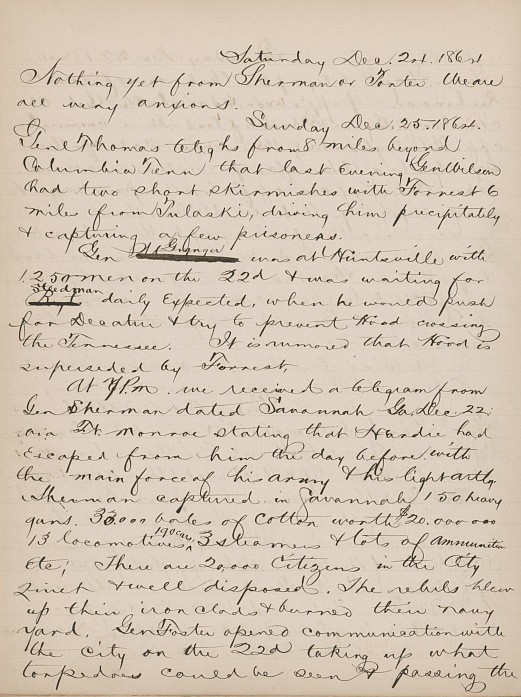 Saturday Dec. 24. 1864
Nothing yet from Sherman or Foster We are
all very anxious.
Sunday Dec. 25. 1864.
Genl Thomas teleghs from 8 miles beyond
Columbia Tenn that last Evening Gen Wilson
had two short skirmishes with Forrest 6
miles from Pulaski, driving him precipitately
& capturing a few prisoners.
Gen Granger was at Huntsville with
1,250 men on the 22d & was waiting for
Steedman
daily Expected, when he would push
for Decatur & try to prevent Hood crossing
the Tennessee. It is rumored that Hood is
superseded by Forrest,
At 7 P.M. we received a telegram from
Gen Sherman dated Savannah Ga. Dec. 22;
via Ft Monroe stating that Hardie had
Escaped from him the day before, with
the main force of his army & his light artly
Sherman captured in Savannah 150 heavy
guns. bales of Cotton worth $20.000 000
190 cars,
13 locomotives 3 steamers & lots of ammunition
Etc; There are 20,000 Citizens in the City
quiet & well disposed. The rebels blew
up their iron clads & burned their navy
yard. Gen Foster opened communication with
the city on the 22d taking up what
torpedoes could be seen & passing the